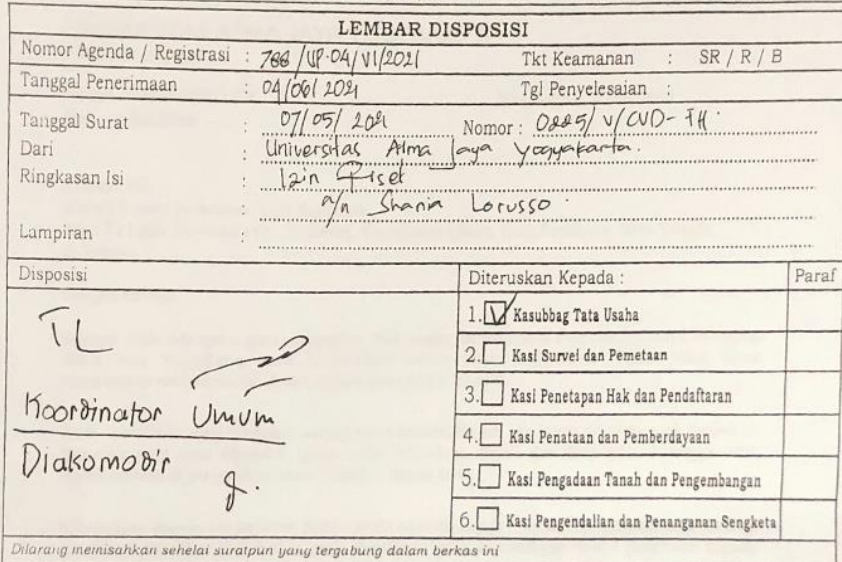 LEMBAR DISPOSISI
Nomor Agenda / Registrasi : 788/UP.04/VI/2021 Tkt Keamanan : SR / R / B
Tanggal Penerimaan : 04/06/2021 Tgl Penyelesaian :
Tanggal Surat : 07/05/2021 Nomor : 0225/V/CVD-FH
Dari : Universitas Atma Jaya Yogyakarta.
Ringkasan Isi : Izin Riset
: a/n Shania Lorusso
Lampiran :
Disposisi
Diteruskan Kepada : Paraf
1. Kasubbag Tata Usaha
2. Kasi Survei dan Pemetaan
3. Kasi Penetapan Hak dan Pendaftaran
4. Kasi Penataan dan Pemberdayaan
5. Kasi Pengadaan Tanah dan Pengembangan
6. Kasi Pengendalian dan Penanganan Sengketa
TL
Koordinator Umum
Diakomodir
Dilarang memisahkan sehelai suratpun yang tergabung dalam berkas ini